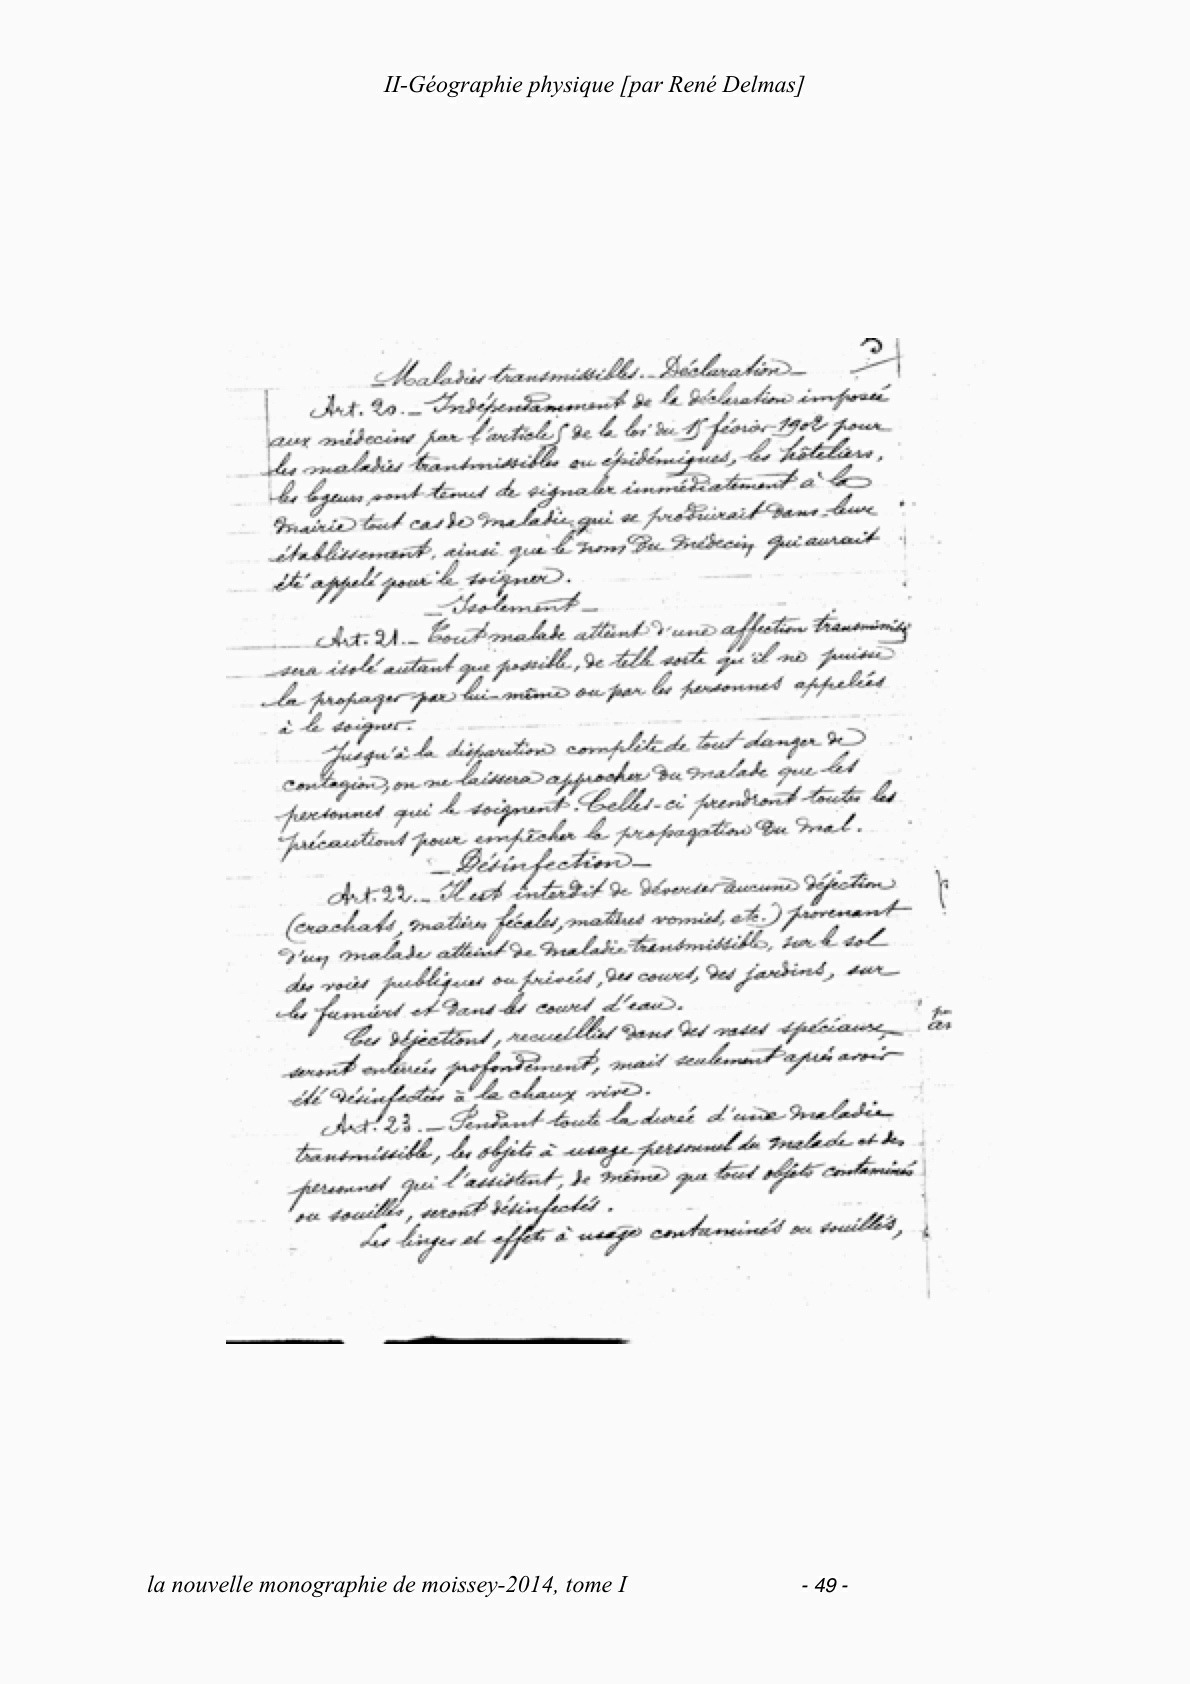 II-Géographie physique [par René Delmas]
Maladies transmissibles._ Déclaration_
Art. 20._ Indépendamment de la déclaration imposée
aux médecins par l'article 5 de la loi du 15 février 1902 pour
les maladies transmissibles ou épidémiques, les hôteliers,
les logeurs sont tenus de signaler immédiatement à la
mairie tout cas de maladie qui se produirait dans leur
établissement, ainsi que le nom du médecin qui aurait
été appelé pour le soigner.
_ Isolement _
Art. 21._ Tout malade atteint d'une affection
sera isolé autant que possible, de telle sorte qu'il ne puisse
la propager par lui-même ou par les personnes appelées
à le soigner.
Jusqu'à la disparition complète de tout danger de
contagion, on ne laissera approcher du malade que les
personnes qui le soignent. Celles-ci prendront toutes les
précautions pour empêcher la propagation du mal.
_ Désinfection _
Art. 22._ Il est interdit de déverser aucune déjection
(crachats, matières fécales, matières vomies, etc.) provenant
d'un malade atteint de maladie transmissible, sur le sol
des voies publiques ou privées, des cours, des jardins, sur
les fumiers et dans les cours d'eau.
Ces déjections, recueillies dans des vases spéciaux,
seront enterrées profondément, mais seulement après avoir
été désinfectées à la chaux vive.
Art. 23._ Pendant toute la durée d'une maladie
transmissible, les objets à usage personnel du malade et des
personnes qui l'assistent, de même que tous objets contaminés
ou souillés, seront désinfectés.
Les linges et effets à usage contaminés ou souillés,
la nouvelle monographie de moissey-2014, tome I
- 49 -